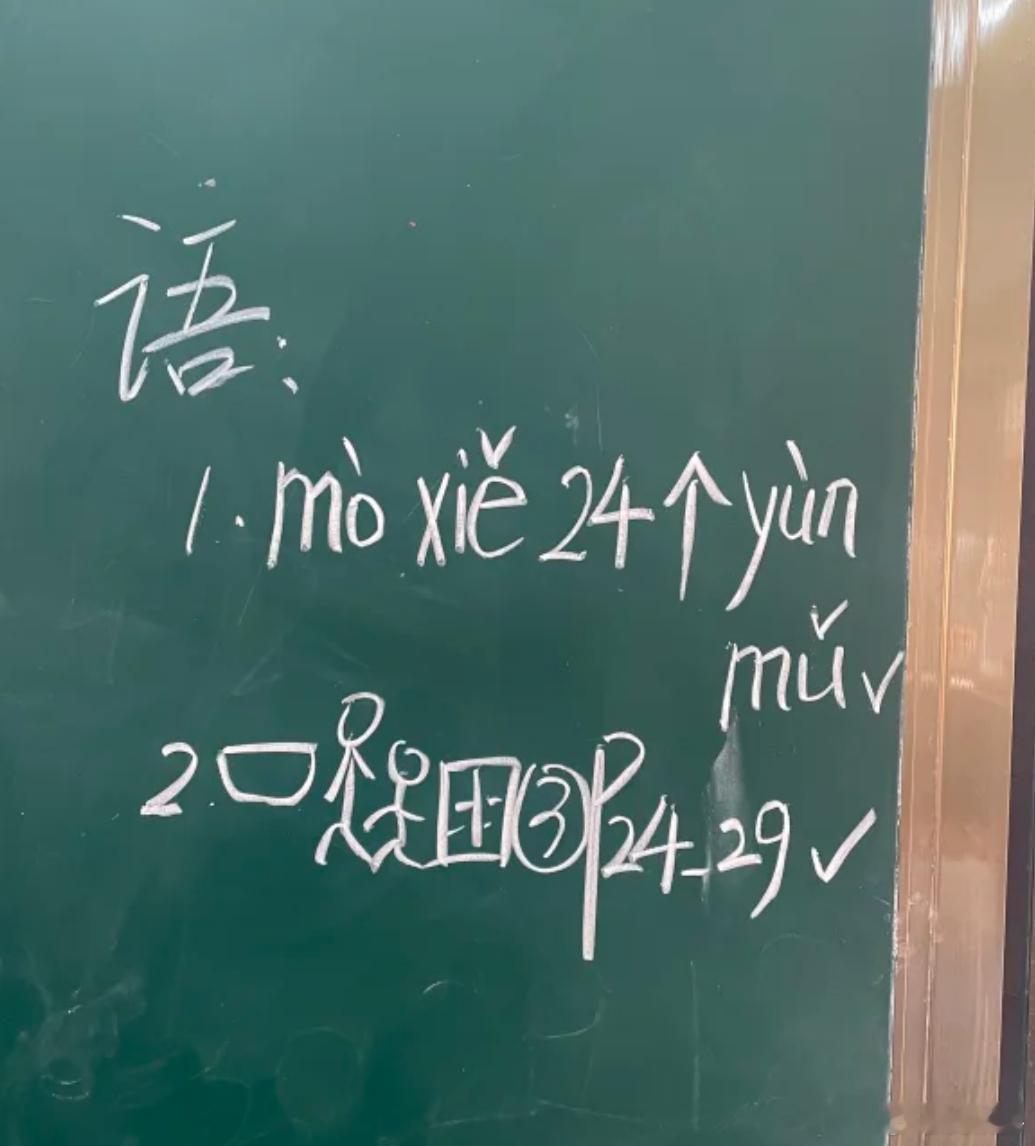 语:
1. mò xiě 24个 yùn
mǔ✓
2. 口 田③P24-29✓